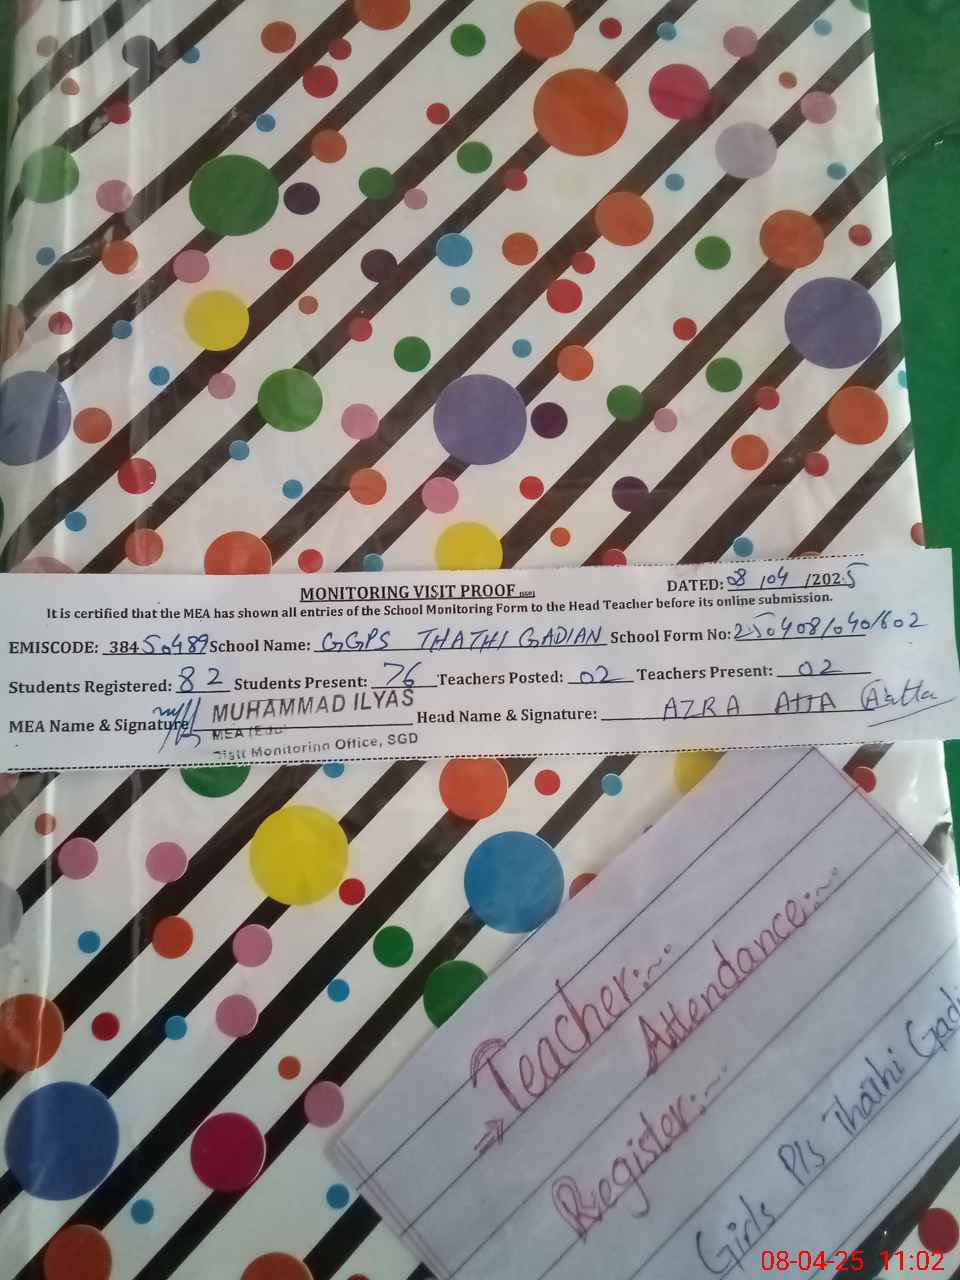 MONITORING VISIT PROOF
DATED: 08/04/2025
It is certified that the MEA has shown all entries of the School Monitoring Form to the Head Teacher before its online submission.
EMISCODE: 38450489 School Name: GGPS THATHI GADIAN School Form No: 250408/040/602
Students Registered: 82 Students Present: 76 Teachers Posted: 02 Teachers Present: 02
MEA Name & Signature MUHAMMAD ILYAS Head Name & Signature: AZRA ATTA Aatta
MEA (Edu
Distt Monitoring Office, SGD
Teacher:~
Attendance:~
Register:~
Girls P/s Thathi Gadi
08-04-25 11:02